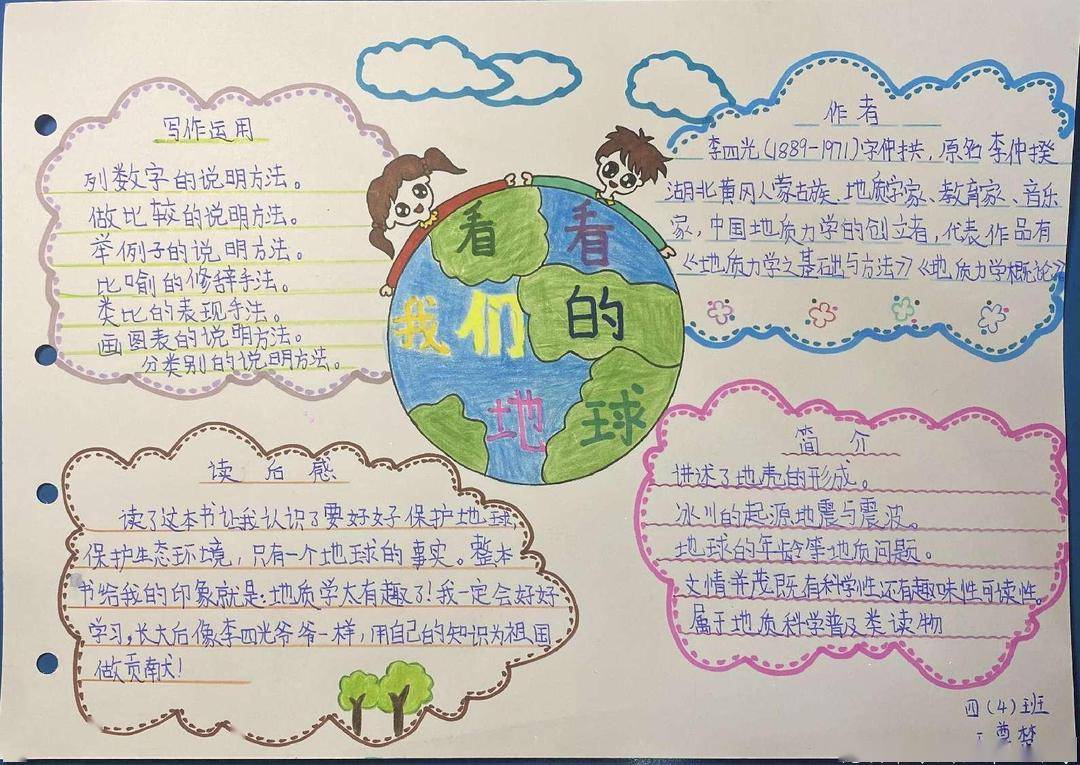 看看
我们的
地球
写作运用
列数字的说明方法。
做比较的说明方法。
举例子的说明方法。
比喻的修辞手法。
类比的表现手法。
画图表的说明方法。
分类别的说明方法。
作者
李四光(1889-1971)字仲拱,原名李仲揆
湖北黄冈人蒙古族、地质学家、教育家、音乐
家,中国地质力学的创立者,代表作品有
《地质力学之基础与方法》《地质力学概论》
读后感
读了这本书让我认识了要好好保护地球,
保护生态环境,只有一个地球的事实。整本
书给我的印象就是:地质学太有趣了!我一定会好好
学习,长大后像李四光爷爷一样,用自己的知识为祖国
做贡献!
简介
讲述了地壳的形成。
冰川的起源地震与震波。
地球的年龄等地质问题。
文情并茂既有科学性还有趣味性可读性。
属于地质科学普及类读物
四(4)班